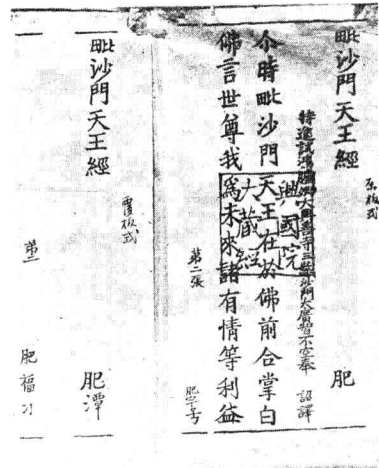 原板式
毗沙門天王經 肥
特進試鴻臚卿大興善寺三藏沙門大廣智不空奉 詔譯
尒時毗沙門天王在於佛前合掌白
佛言世尊我爲未來諸有情等利益
興國院
大藏經
第二張 肥字号
覆板式
毗沙門天王經 肥潭
第二 肥福